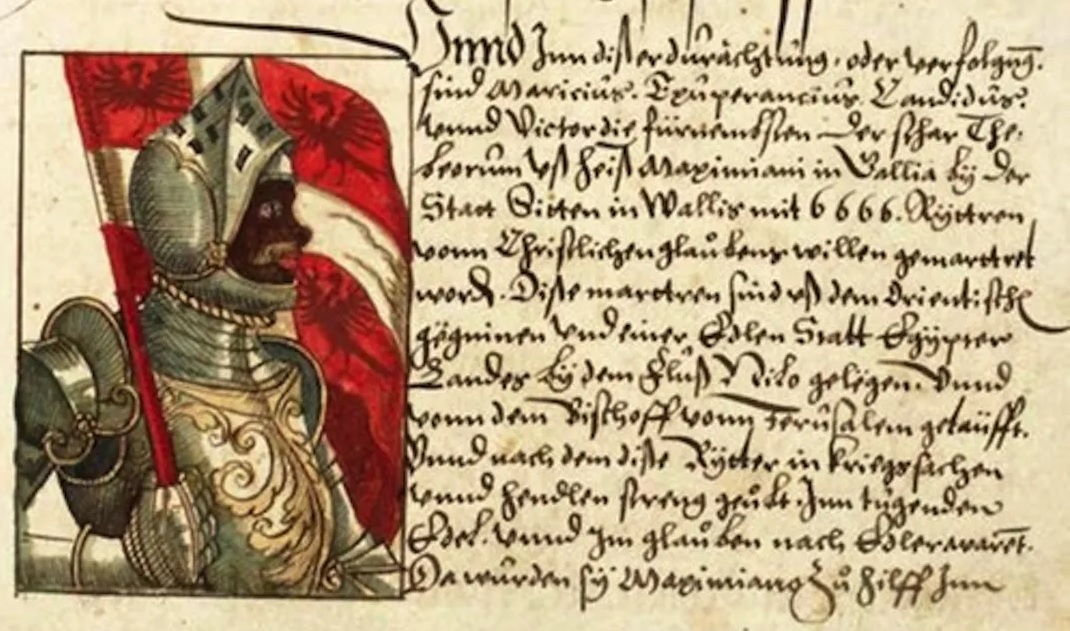 Unnd Inn disser durächtung, oder verfolgūg.
sind Mauricius. Exuperancius. Candidus.
unnd Victor die fürnembsten der schar The-
beorum uß heiß Maximiani in Gallia by der
Statt Sitten in Wallis mit 6666. Ryttren
vonn Christlichen glaubens willen gemarttret
word. Disse marttren sind uß dem Orientisch
gegninen und einer Edlen Statt Egypter
Landes by dem Fluß Nilo gelegen. Unnd
vonn dem Bischoff vonn Jerusalem getaüfft.
Unnd nach dem disse Rytter in kriegs sachen
unnd hendlen streng geübt. Inn tugenden
Edel. unnd Im glauben nach Edler
Da wurden sy Maximiano zů hilff Inn